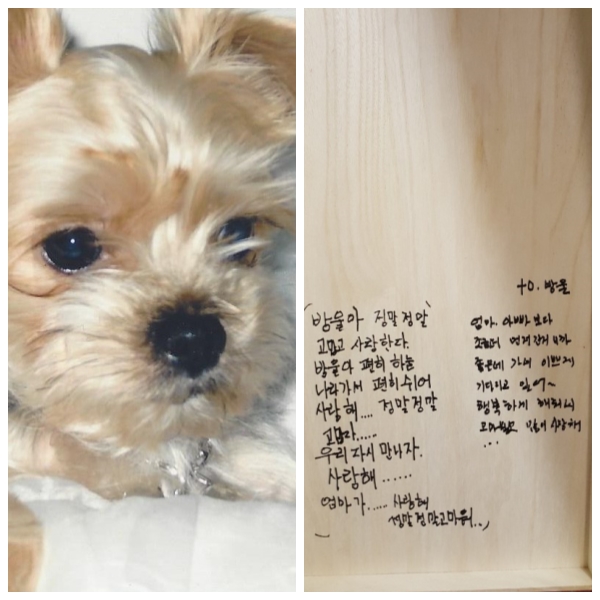 방울아 정말정말
고맙고 사랑한다.
방울아 편히 하늘
나라가서 편히쉬어
사랑해.... 정말정말
고맙다......
우리 다시 만나자.
사랑해 ......
엄마가..... 사랑해
정말정말고마워..,
to. 방울
엄마. 아빠 보다
조금더 먼저간거 니까
좋은데 가서 이쁘게
기다리고 있어~
행복하게 해줘서
고마웠고 많이 사랑해
...